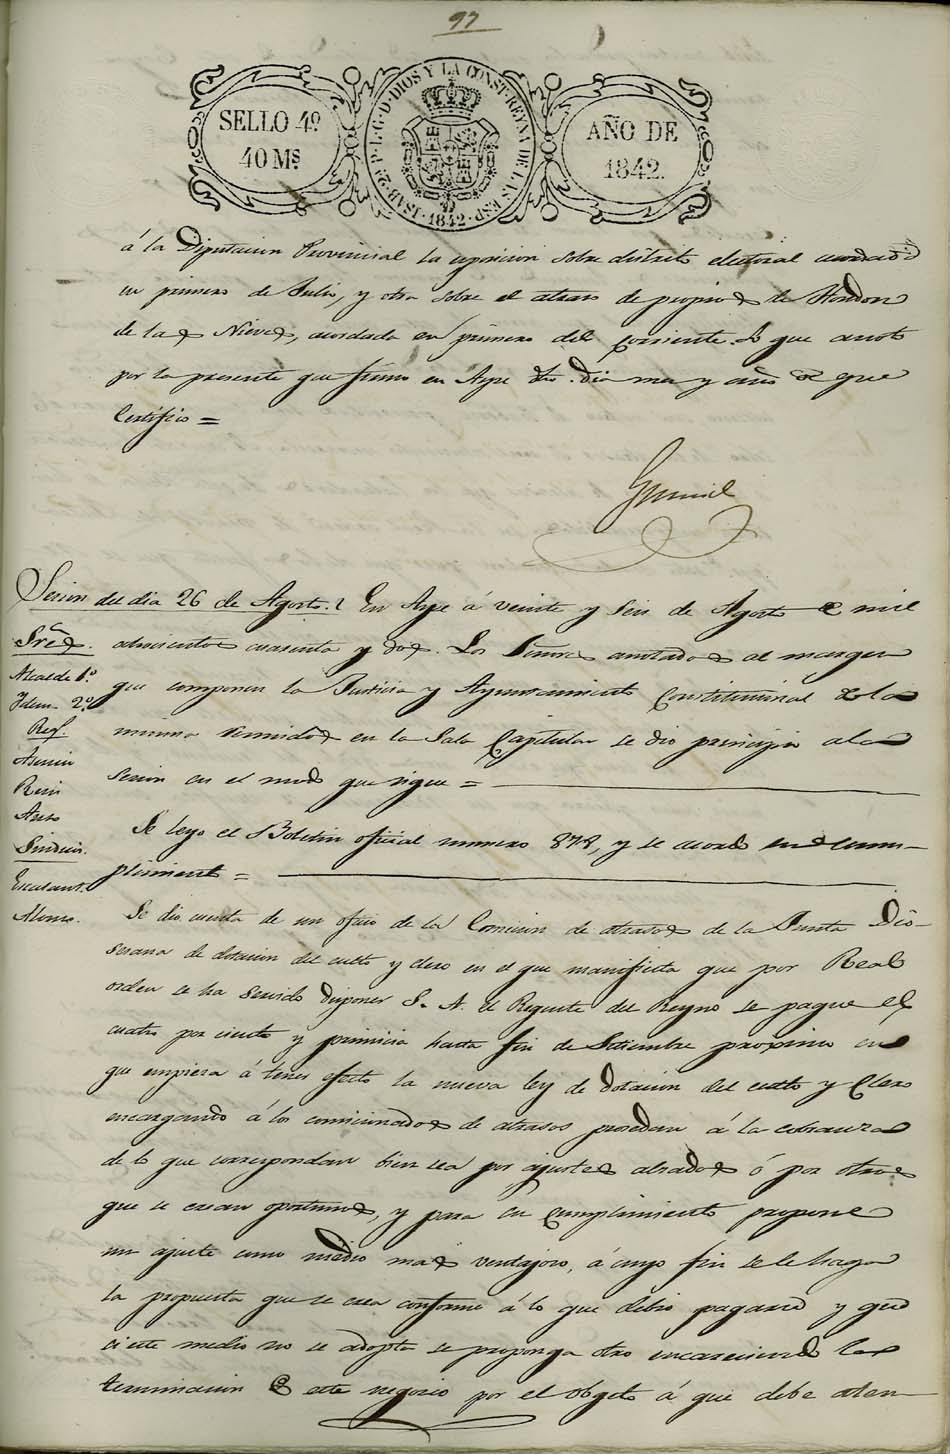 97
SELLO 4º
40 Mˢ
ISAB. 2ª P. L. G. D. DIOS Y LA CONST. REYNA DE LAS ESP.
1842
AÑO DE
1842.
á la Diputacion Provincial la esposicion sobre distrito electoral acordada
en primero de Julio, y otra sobre el atraso de propios de Hondon
de las Nieves, acordada en primero del corriente. Lo que anoto
por la presente que firmo en Aspe dho. dia mes y año de que
Certifico =
Sesion del dia 26 de Agosto. En Aspe á veinte y seis de Agosto de mil
Sres. ochocientos cuarenta y dos. Los Señores anotados al margen
Alcalde 1º que componen la Justicia y Ayuntamiento Constitucional de la
Idem 2º
Reg.
misma reunidos en la Sala Capitular se dio principio a la
Asencio
sesion en el modo que sigue =
Sindicos.
Se leyo el Boletin oficial numero 878, y se acordó su cum-
plimiento =
Alonso.
Se dio cuenta de un oficio de la Comision de atrasos de la Junta Dio-
sesana de dotacion del culto y clero en el que manifiesta que por Real
orden se ha servido disponer S. A. el Regente del Reyno se pague el
cuatro por ciento y primicia hasta fin de Setiembre proximo en
que empiesa á tener efecto la nueva ley de dotacion del culto y Clero
encargando á los comisionados de atrasos procedan á la cobranza
de lo que correspondan bien sea por ajustes alsados ó por otros
que se crean oportunos, y para su cumplimiento propone
un ajuste como medio mas ventajoso, á cuyo fin se le haga
la propuesta que se crea conforme á lo que debió pagarse y que
si este medio no se adopta se proponga otro encareciendo la
terminacion de este negocio por el obgeto á que debe aten-